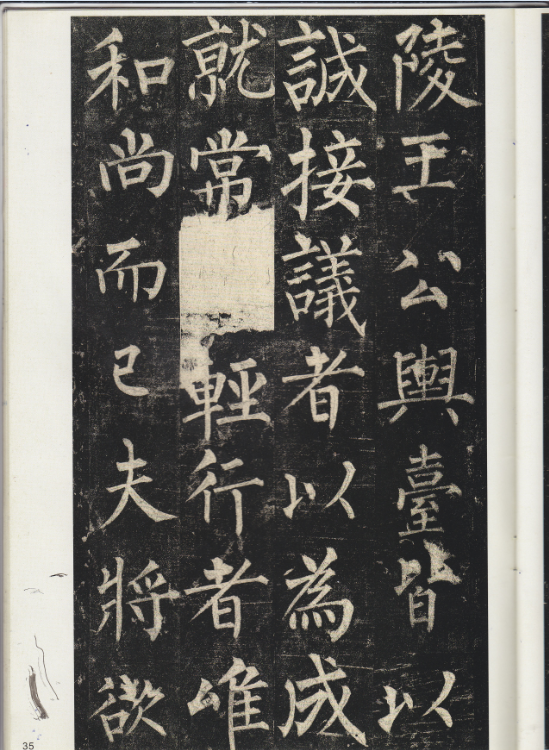 陵王公輿臺皆以
誠接議者以為成
就常輕行者唯
和尚而已夫將欲
35